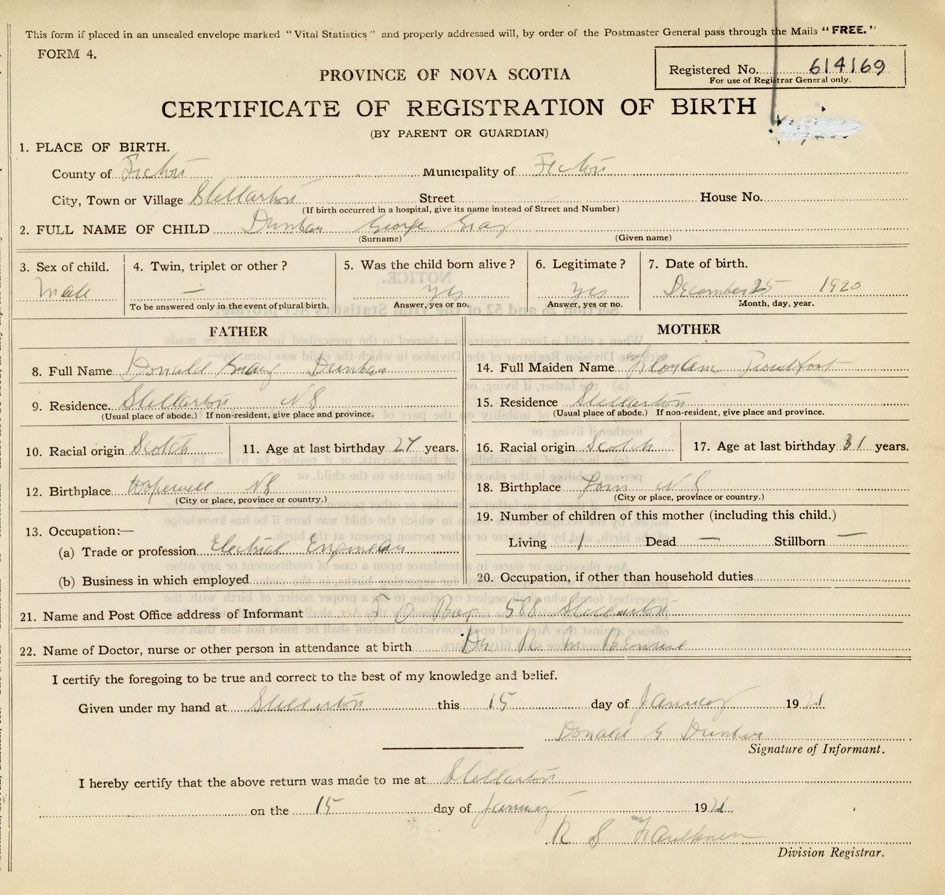 This form if placed in an unsealed envelope marked "Vital Statistics" and properly addressed will, by order of the Postmaster General pass through the Mails "FREE."
FORM 4.
Registered No. 614169
For use of Registrar General only.
PROVINCE OF NOVA SCOTIA
CERTIFICATE OF REGISTRATION OF BIRTH
(BY PARENT OR GUARDIAN)
1. PLACE OF BIRTH.
County of Pictou Municipality of Pictou
City, Town or Village Stellarton Street House No.
(If birth occurred in a hospital, give its name instead of Street and Number)
2. FULL NAME OF CHILD Dunbar George Gray
(Surname) (Given name)
3. Sex of child. 4. Twin, triplet or other? 5. Was the child born alive? 6. Legitimate? 7. Date of birth.
Male — yes yes December 25 1920
To be answered only in the event of plural birth. Answer, yes or no. Answer, yes or no. Month, day, year.
FATHER MOTHER
8. Full Name Donald Gray Dunbar 14. Full Maiden Name Proudfoot
9. Residence. Stellarton NS 15. Residence Stellarton
(Usual place of abode.) If non-resident, give place and province. (Usual place of abode.) If non-resident, give place and province.
10. Racial origin Scotch 11. Age at last birthday 27 years. 16. Racial origin Scotch 17. Age at last birthday 31 years.
12. Birthplace Hopewell NS 18. Birthplace NS
(City or place, province or country.) (City or place, province or country.)
13. Occupation:— 19. Number of children of this mother (including this child.)
(a) Trade or profession Electrical Engineer Living 1 Dead — Stillborn —
(b) Business in which employed 20. Occupation, if other than household duties
21. Name and Post Office address of Informant P O Box 588 Stellarton
22. Name of Doctor, nurse or other person in attendance at birth Dr
I certify the foregoing to be true and correct to the best of my knowledge and belief.
Given under my hand at Stellarton this 15 day of January 1921
Donald G Dunbar
Signature of Informant.
I hereby certify that the above return was made to me at Stellarton
on the 15 day of January 1921
R S Faulkner
Division Registrar.